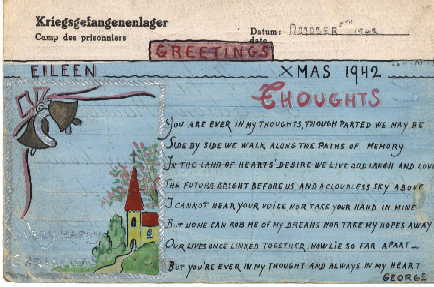 Kriegsgefangenenlager
Camp des prisonniers
Datum:
date
1942
GREETINGS
EILEEN
XMAS 1942
THOUGHTS
YOU ARE EVER IN MY THOUGHTS, THOUGH PARTED WE MAY BE
SIDE BY SIDE WE WALK ALONG THE PATHS OF MEMORY
IN THE LAND OF HEARTS' DESIRE WE LIVE AND LAUGH AND LOVE
THE FUTURE BRIGHT BEFORE US AND A CLOUDLESS SKY ABOVE
I CANNOT HEAR YOUR VOICE NOR TAKE YOUR HAND IN MINE
BUT NONE CAN ROB ME OF MY DREAMS NOR TAKE MY HOPES AWAY
OUR LIVES ONCE LINKED TOGETHER, NOW LIE SO FAR APART
BUT YOU'RE EVER IN MY THOUGHT AND ALWAYS IN MY HEART
GEORGE